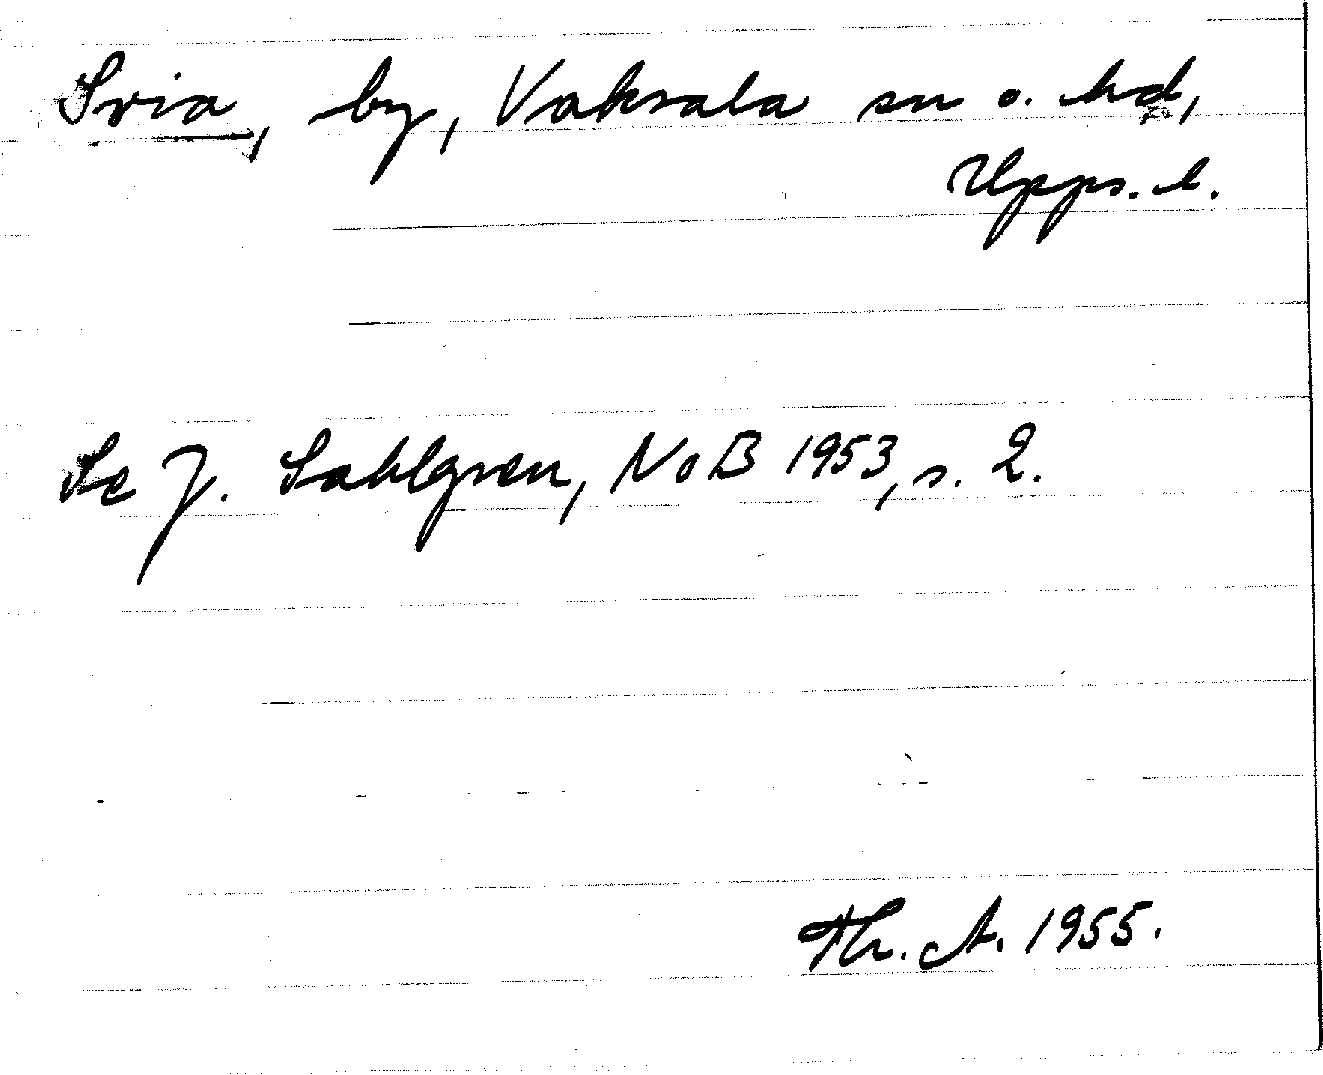 Svia, by, Vaksala sn o. hd,
Upps. l.
Se J. Sahlgren, NoB 1953, s. 2.
Th. A. 1955.